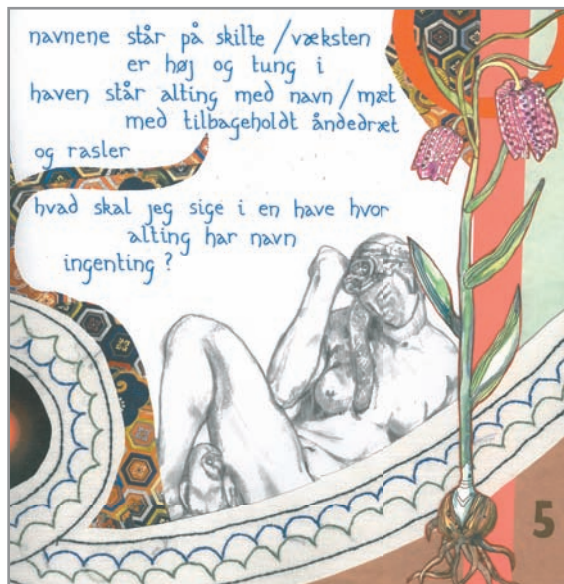 navnene står på skilte / væksten
er høj og tung i
haven står alting med navn / mæt
med tilbageholdt åndedræt
og rasler
hvad skal jeg sige i en have hvor
alting har navn
ingenting ?
5